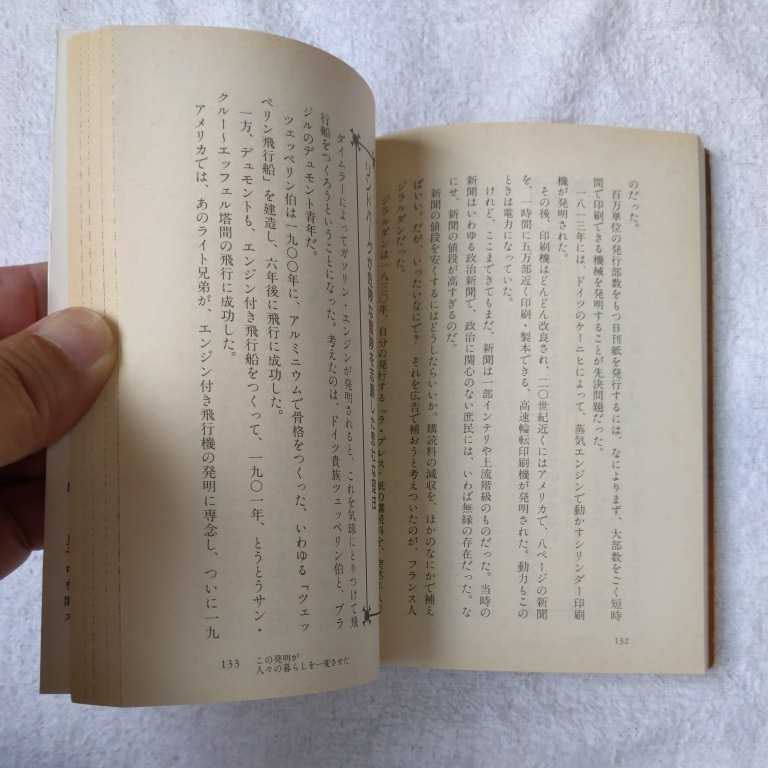 のだった。
百万単位の発行部数をもつ日刊紙を発行するには、なによりまず、大部数をごく短時
間で印刷できる機械を発明することが先決問題だった。
一八一三年には、ドイツのケーニヒによって、蒸気エンジンで動かすシリンダー印刷
機が発明された。
その後、印刷機はどんどん改良され、二〇世紀近くにはアメリカで、八ページの新聞
を、一時間に五万部近く印刷・製本できる、高速輪転印刷機が発明された。動力もこの
ときは電力になっていた。
けれど、ここまできてもまだ、新聞は一部インテリや上流階級のものだった。当時の
新聞はいわゆる政治新聞で、政治に関心のない庶民には、いわば無縁の存在だった。な
にせ、新聞の値段が高すぎるのだ。
新聞の値段を安くするにはどうしたらいいか。購読料の減収を、ほかのなにかで補え
ばいい。だが、いったいなにで？ それを広告で補おうと考えついたのが、フランス人
ジラルダンだった。
ジラルダンは一八三〇年、自分の発行する『ラ・プレス』紙の購読料を、
132
タイムラーによってガソリン・エンジンが発明されると、これを気球にとりつけて飛
行船をつくろうということになった。考えたのは、ドイツ貴族ツェッペリン伯と、ブラ
ジルのデュモント青年だ。
ツェッペリン伯は一九〇〇年に、アルミニウムで骨格をつくった、いわゆる『ツェッ
ペリン飛行船』を建造し、六年後に飛行に成功した。
一方、デュモントも、エンジン付き飛行船をつくって、一九〇一年、とうとうサン・
クルー〜エッフェル塔間の飛行に成功した。
アメリカでは、あのライト兄弟が、エンジン付き飛行機の発明に専念し、ついに一九
133
この発明が
人々の暮らしを一変させた